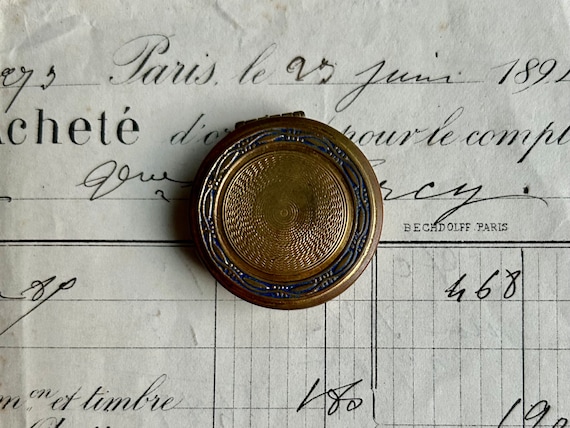 Paris, le 23 juin 189
Acheté d'or pour le compt
BECHDOLFF. PARIS
80
468
on et timbre 180
190